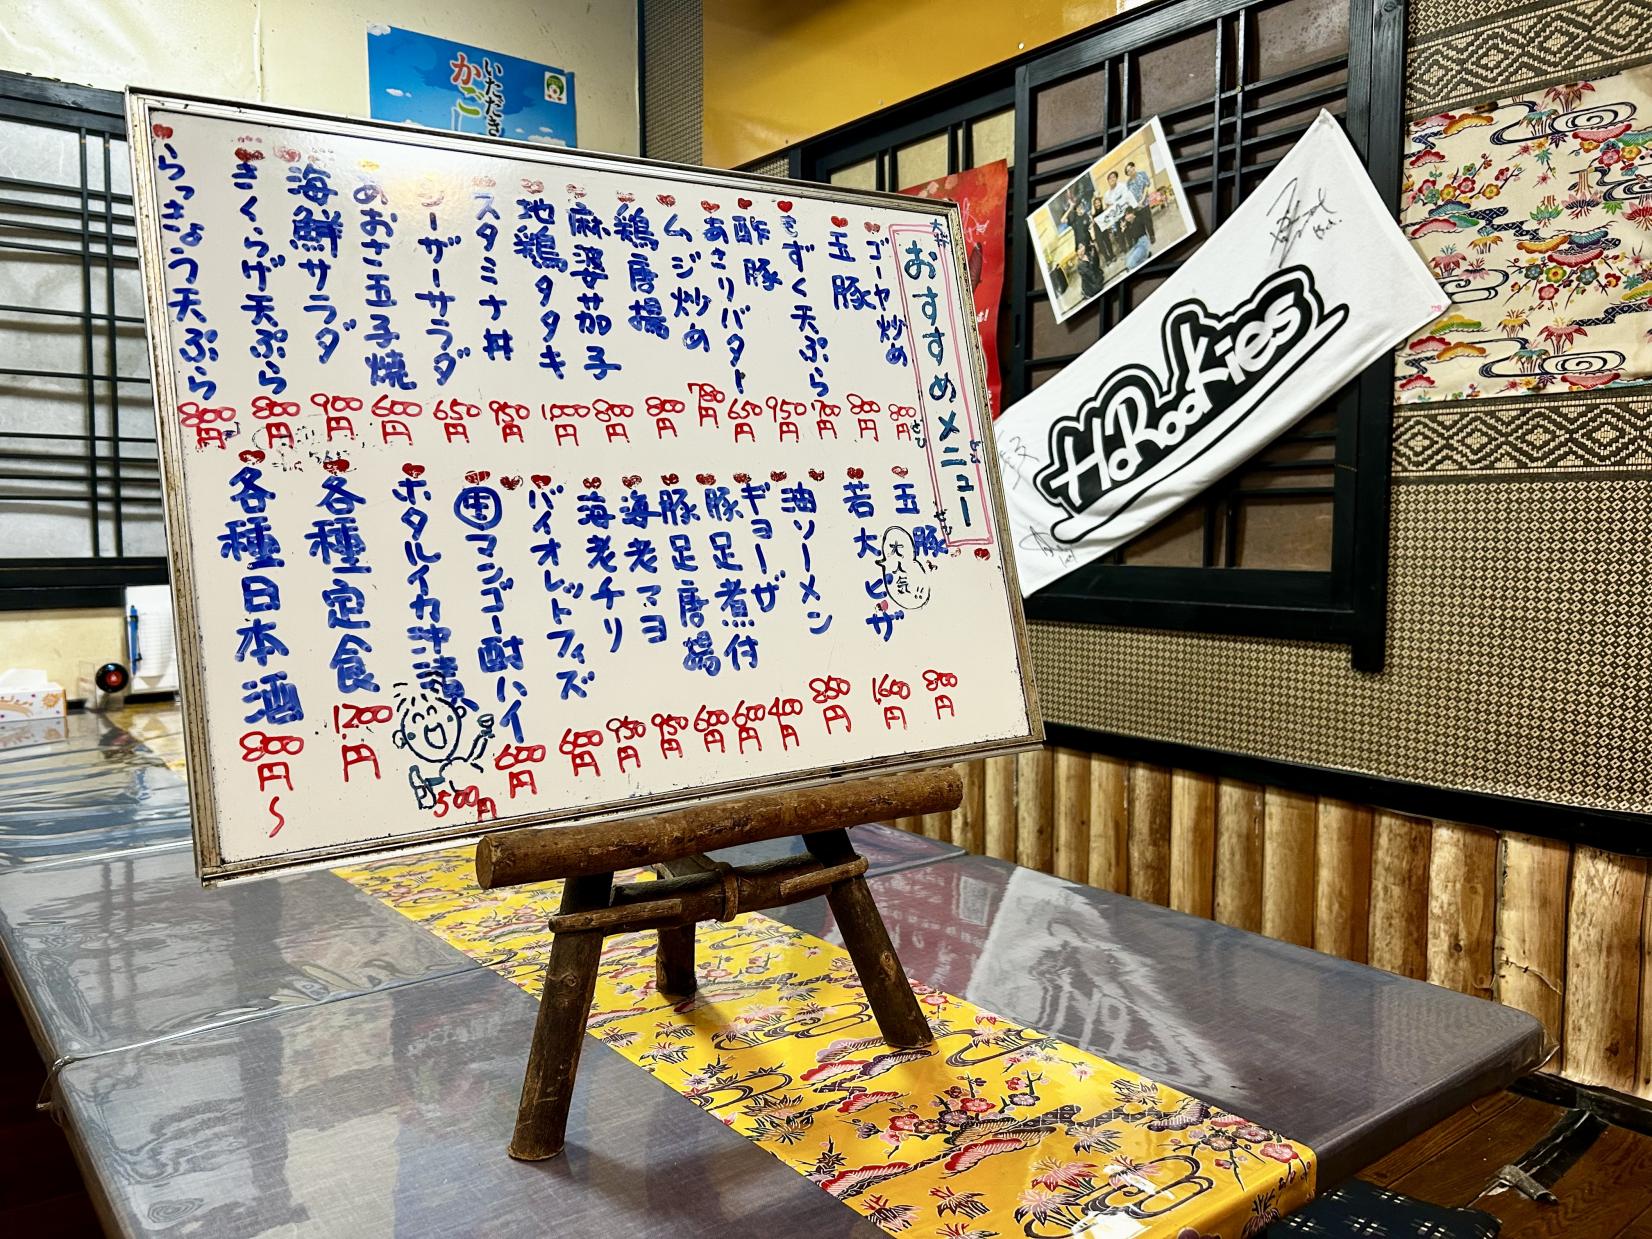 おすすめメニュー
ゴーヤ炒め 800円
玉豚 800円
もずく天ぷら 700円
酢豚 950円
あさりバター 650円
ムジ炒め 780円
鶏唐揚 800円
麻婆茄子 800円
地鶏タタキ 1000円
スタミナ丼 950円
シーザーサラダ 650円
あおさ玉子焼 600円
海鮮サラダ 900円
さくらげ天ぷら 800円
らっきょう天ぷら 800円
玉豚 800円
大人気!!
若大ピザ 1600円
油ソーメン 850円
ギョーザ 400円
豚足煮付 600円
豚足唐揚 600円
海老マヨ 950円
海老チリ 950円
バイオレットフィズ 600円
マンゴー酎ハイ 600円
ホタルイカ沖漬 500円
各種定食 1200円
各種日本酒 800円〜
いただきま
かご
HoRookies